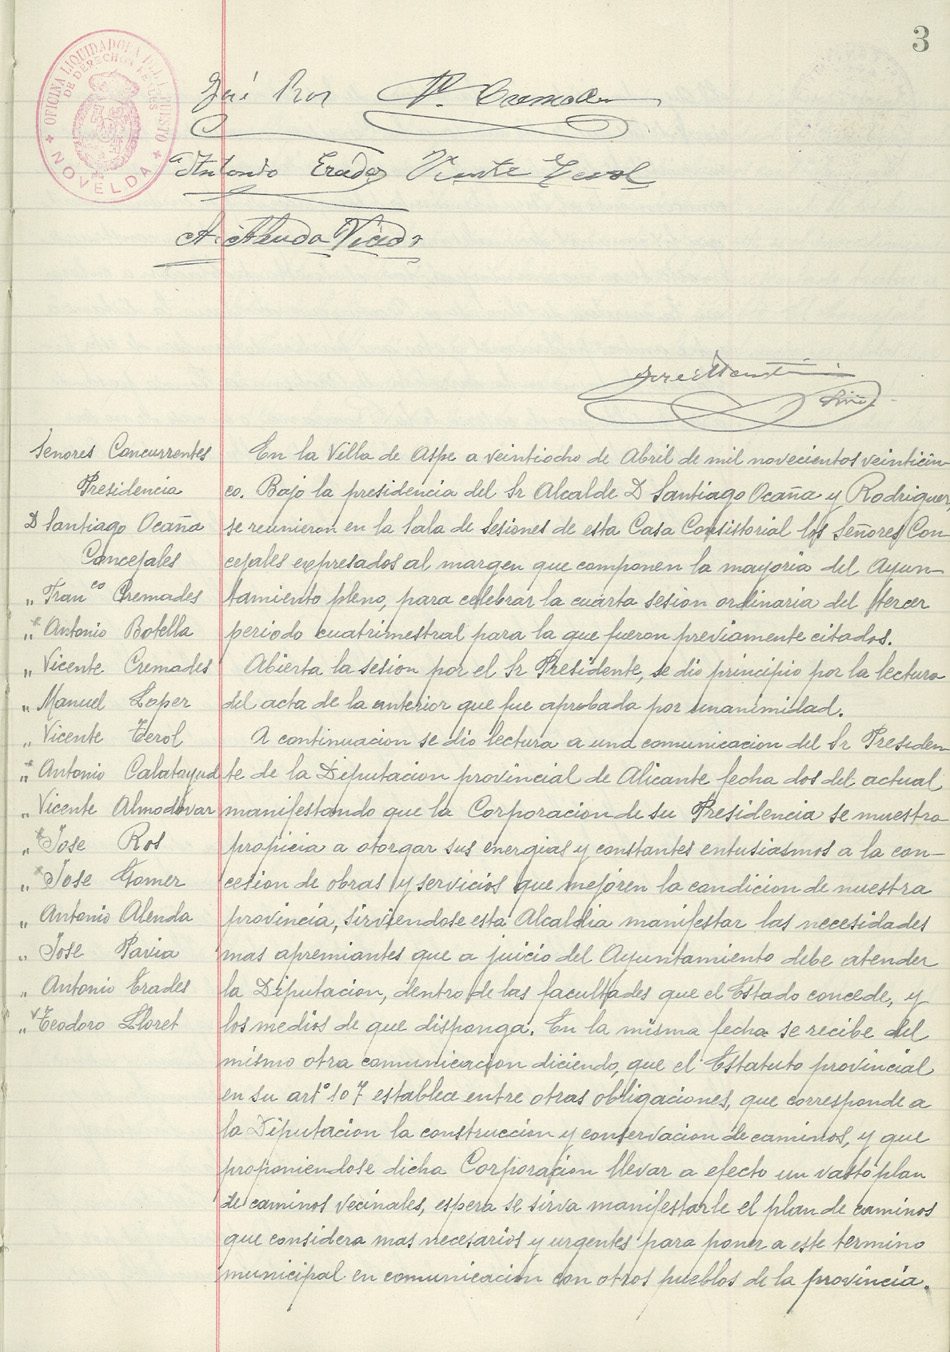 3
OFICINA LIQUIDADORA DEL IMPUESTO
DE DERECHOS REALES
NOVELDA
José Ros
Antonio Erades Vicente Terol
A. Alenda
Señores Concurrentes
Presidencia
D Santiago Ocaña
Concejales
„ Fran.co Cremades
„ Antonio Botella
„ Vicente Cremades
„ Manuel Lopez
„ Vicente Terol
„ Antonio Calatayud
„ Vicente Almodóvar
„ Jose Ros
„ Jose Gomez
„ Antonio Alenda
„ Jose Pavia
„ Antonio Erades
„ Teodoro Lloret
En la Villa de Aspe a veintiocho de Abril de mil novecientos veinticin-
co. Bajo la presidencia del Sr Alcalde D Santiago Ocaña y Rodriguez,
se reunieron en la Sala de sesiones de esta Casa Consistorial los Señores Con
cejales expresados al margen que componen la mayoria del Ayun-
tamiento pleno, para celebrar la cuarta sesion ordinaria del tercer
periodo cuatrimestral para la que fueron previamente citados.
Abierta la sesión por el Sr Presidente, se dio principio por la lectura
del acta de la anterior que fue aprobada por unanimidad.
A continuacion se dio lectura a una comunicacion del Sr Presiden
te de la Diputacion provincial de Alicante fecha dos del actual
manifestando que la Corporacion de su Presidencia se muestra
propicia a otorgar sus energias y constantes entusiasmos a la con-
cesion de obras y servicios que mejoren la condicion de nuestra
provincia, sirviendose esta Alcaldia manifestar las necesidades
mas apremiantes que a juicio del Ayuntamiento debe atender
la Diputacion, dentro de las facultades que el Estado concede, y
los medios de que disponga. En la misma fecha se recibe del
mismo otra comunicacion diciendo, que el Estatuto provincial
en su artº 107 establece entre otras obligaciones, que corresponde a
la Diputacion la construccion y conservacion de caminos, y que
proponiendose dicha Corporacion llevar a efecto un vasto plan
de caminos vecinales, espera se sirva manifestarle el plan de caminos
que considera mas necesarios y urgentes para poner a este termino
municipal en comunicacion con otros pueblos de la provincia.